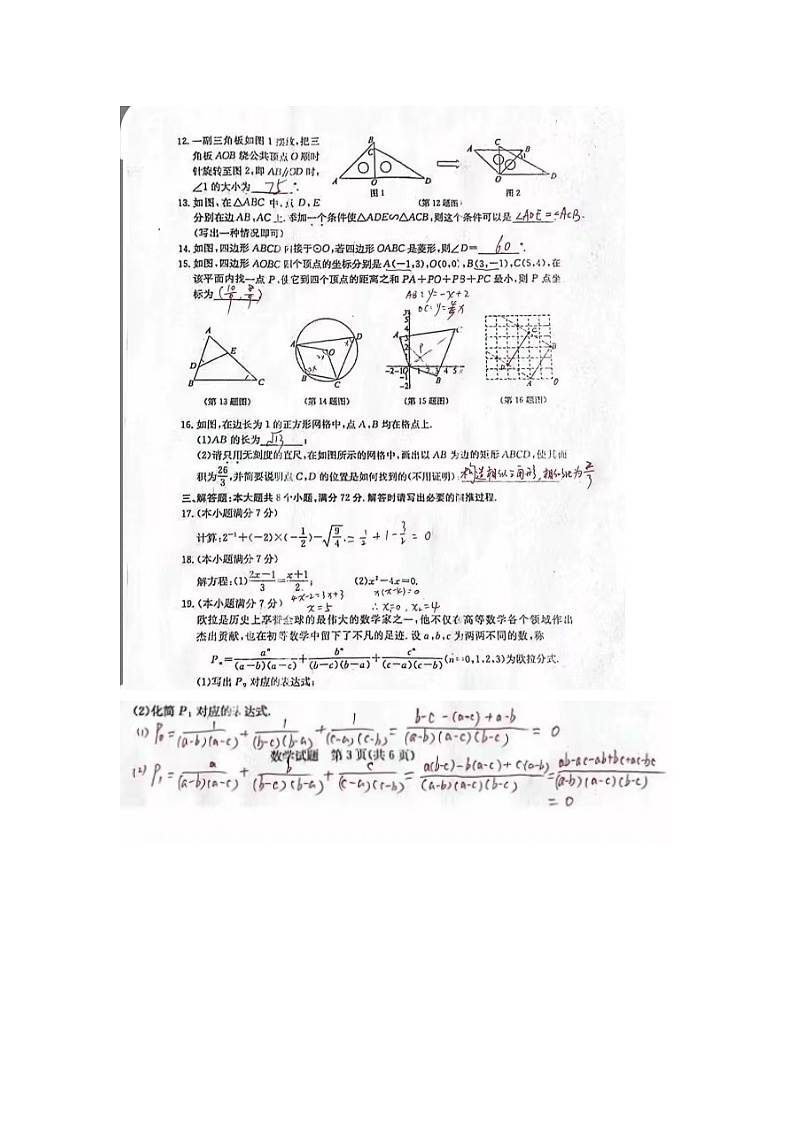 12.一副三角板如图1摆放,把三
角板AOB绕公共顶点O顺时
针旋转至图2,即AB∥OD时,
∠1的大小为 75 °.
图1
图2
(第12题图)
13.如图,在△ABC中,点D,E
分别在边AB,AC上.添加一个条件使△ADE∽△ACB,则这个条件可以是 ∠ADE=∠ACB.
(写出一种情况即可)
14.如图,四边形ABCD内接于⊙O,若四边形OABC是菱形,则∠D= 60 °.
15.如图,四边形AOBC四个顶点的坐标分别是A(-1,3),O(0,0),B(3,-1),C(5,4),在
该平面内找一点P,使它到四个顶点的距离之和PA+PO+PB+PC最小,则P点坐
标为 (10/9, 8/9)
AB:y=-x+2
OC:y=4/5x
(第13题图)
(第14题图)
(第15题图)
(第16题图)
16.如图,在边长为1的正方形网格中,点A,B均在格点上.
(1)AB的长为 √13 ;
(2)请只用无刻度的直尺,在如图所示的网格中,画出以AB为边的矩形ABCD,使其面
积为26/3,并简要说明点C,D的位置是如何找到的(不用证明): 构造相似三角形,相似比为2/3
三、解答题:本大题共8个小题,满分72分.解答时请写出必要的演推过程.
17.(本小题满分7分)
计算:2⁻¹+(-2)×(-1/2)-√(9/4).=1/2+1-3/2=0
18.(本小题满分7分)
解方程:(1)(2x-1)/3=(x+1)/2; (2)x²-4x=0.
4x-2=3x+3 x(x-4)=0
x=5 ∴x₁=0, x₂=4
19.(本小题满分7分)
欧拉是历史上享誉全球的最伟大的数学家之一,他不仅在高等数学各个领域作出
杰出贡献,也在初等数学中留下了不凡的足迹.设a,b,c为两两不同的数,称
Pₙ=aⁿ/((a-b)(a-c))+bⁿ/((b-c)(b-a))+cⁿ/((c-a)(c-b))(n=0,1,2,3)为欧拉分式.
(1)写出P₀对应的表达式;
(2)化简P₁对应的表达式.
(1) P₀=1/((a-b)(a-c))+1/((b-c)(b-a))+1/((c-a)(c-b))=(b-c-(a-c)+a-b)/((a-b)(a-c)(b-c))=0
数学试题 第3页(共6页)
(2) P₁=a/((a-b)(a-c))+b/((b-c)(b-a))+c/((c-a)(c-b))=(a(b-c)-b(a-c)+c(a-b))/((a-b)(a-c)(b-c))=(ab-ac-ab+bc+ac-bc)/((a-b)(a-c)(b-c))
=0